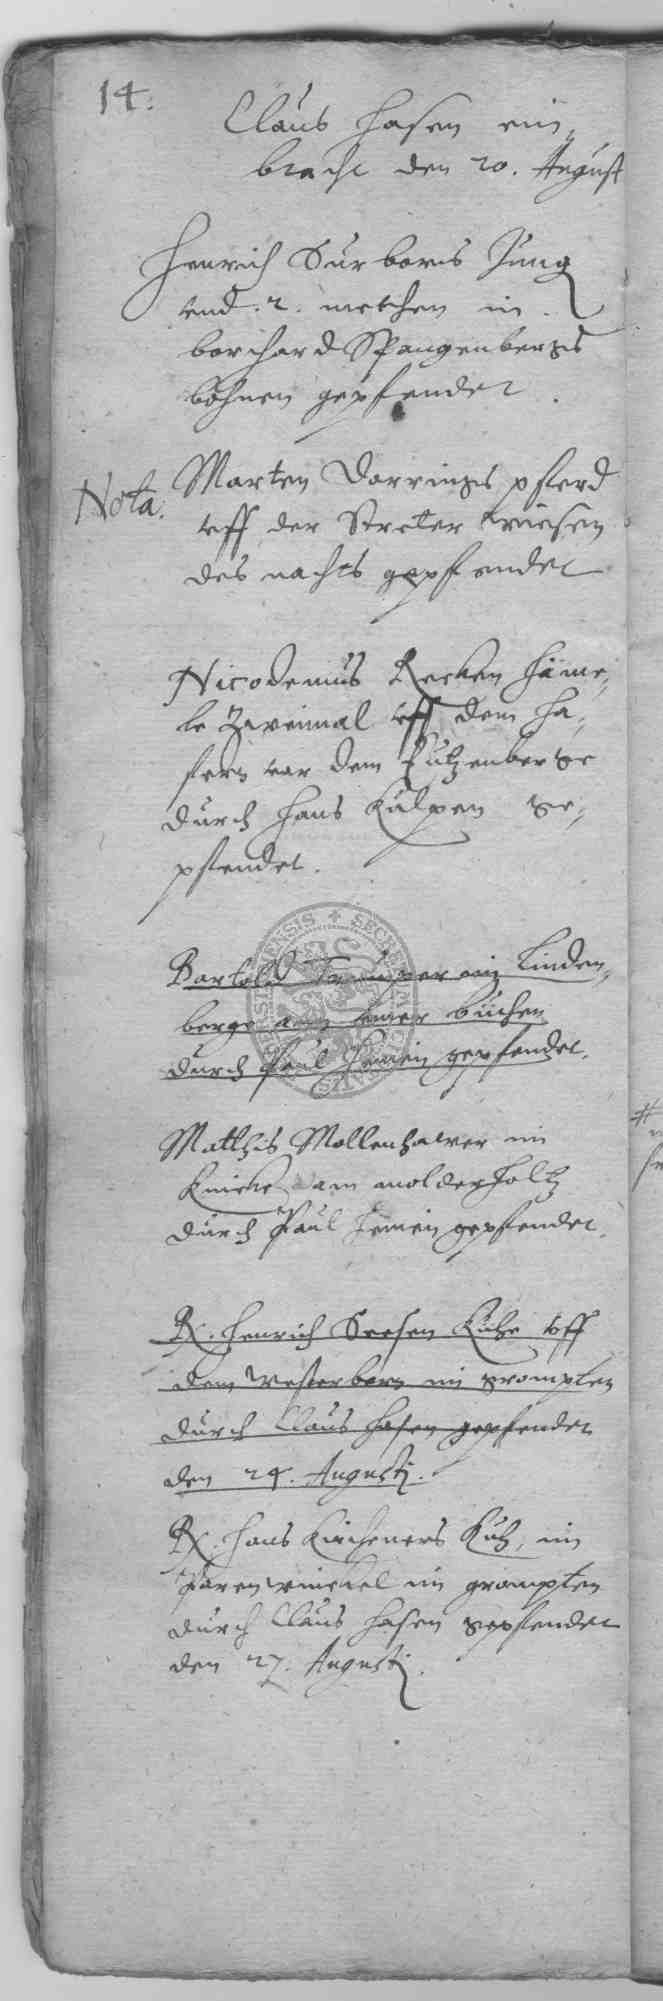 14.
Claus Hasen ein„
bracht den 20. August
Henrich Surborns Jung
vnd . 2 . metchen in
borchard Spangenbergs
bohnen gepfendet .
Nota. Marten Dorrings pferd
vff der Streter wiesen
des nachts gepfendet
Nicodemus Recken häme„
le Zweimal vff dem ha„
fern vor dem Lutzenberge
durch Hans Kulpen ge„
pfendet .
Bartold im Linden„
berge büchen
durch Paul Hemein gepfendet.
Matthis Mollenhawer im
Knicke am molderholtz
durch Paul Hemein gepfendet.
Rx. Henrich Seesen Kühe vff
dem westerborn im grompten
durch Claus Hasen gepfendet
den 24. Augusti.
Rx. Hans Kircheners Kuh, im
winckel im grompten
durch Claus Hasen gepfendet
den 27. Augusti.